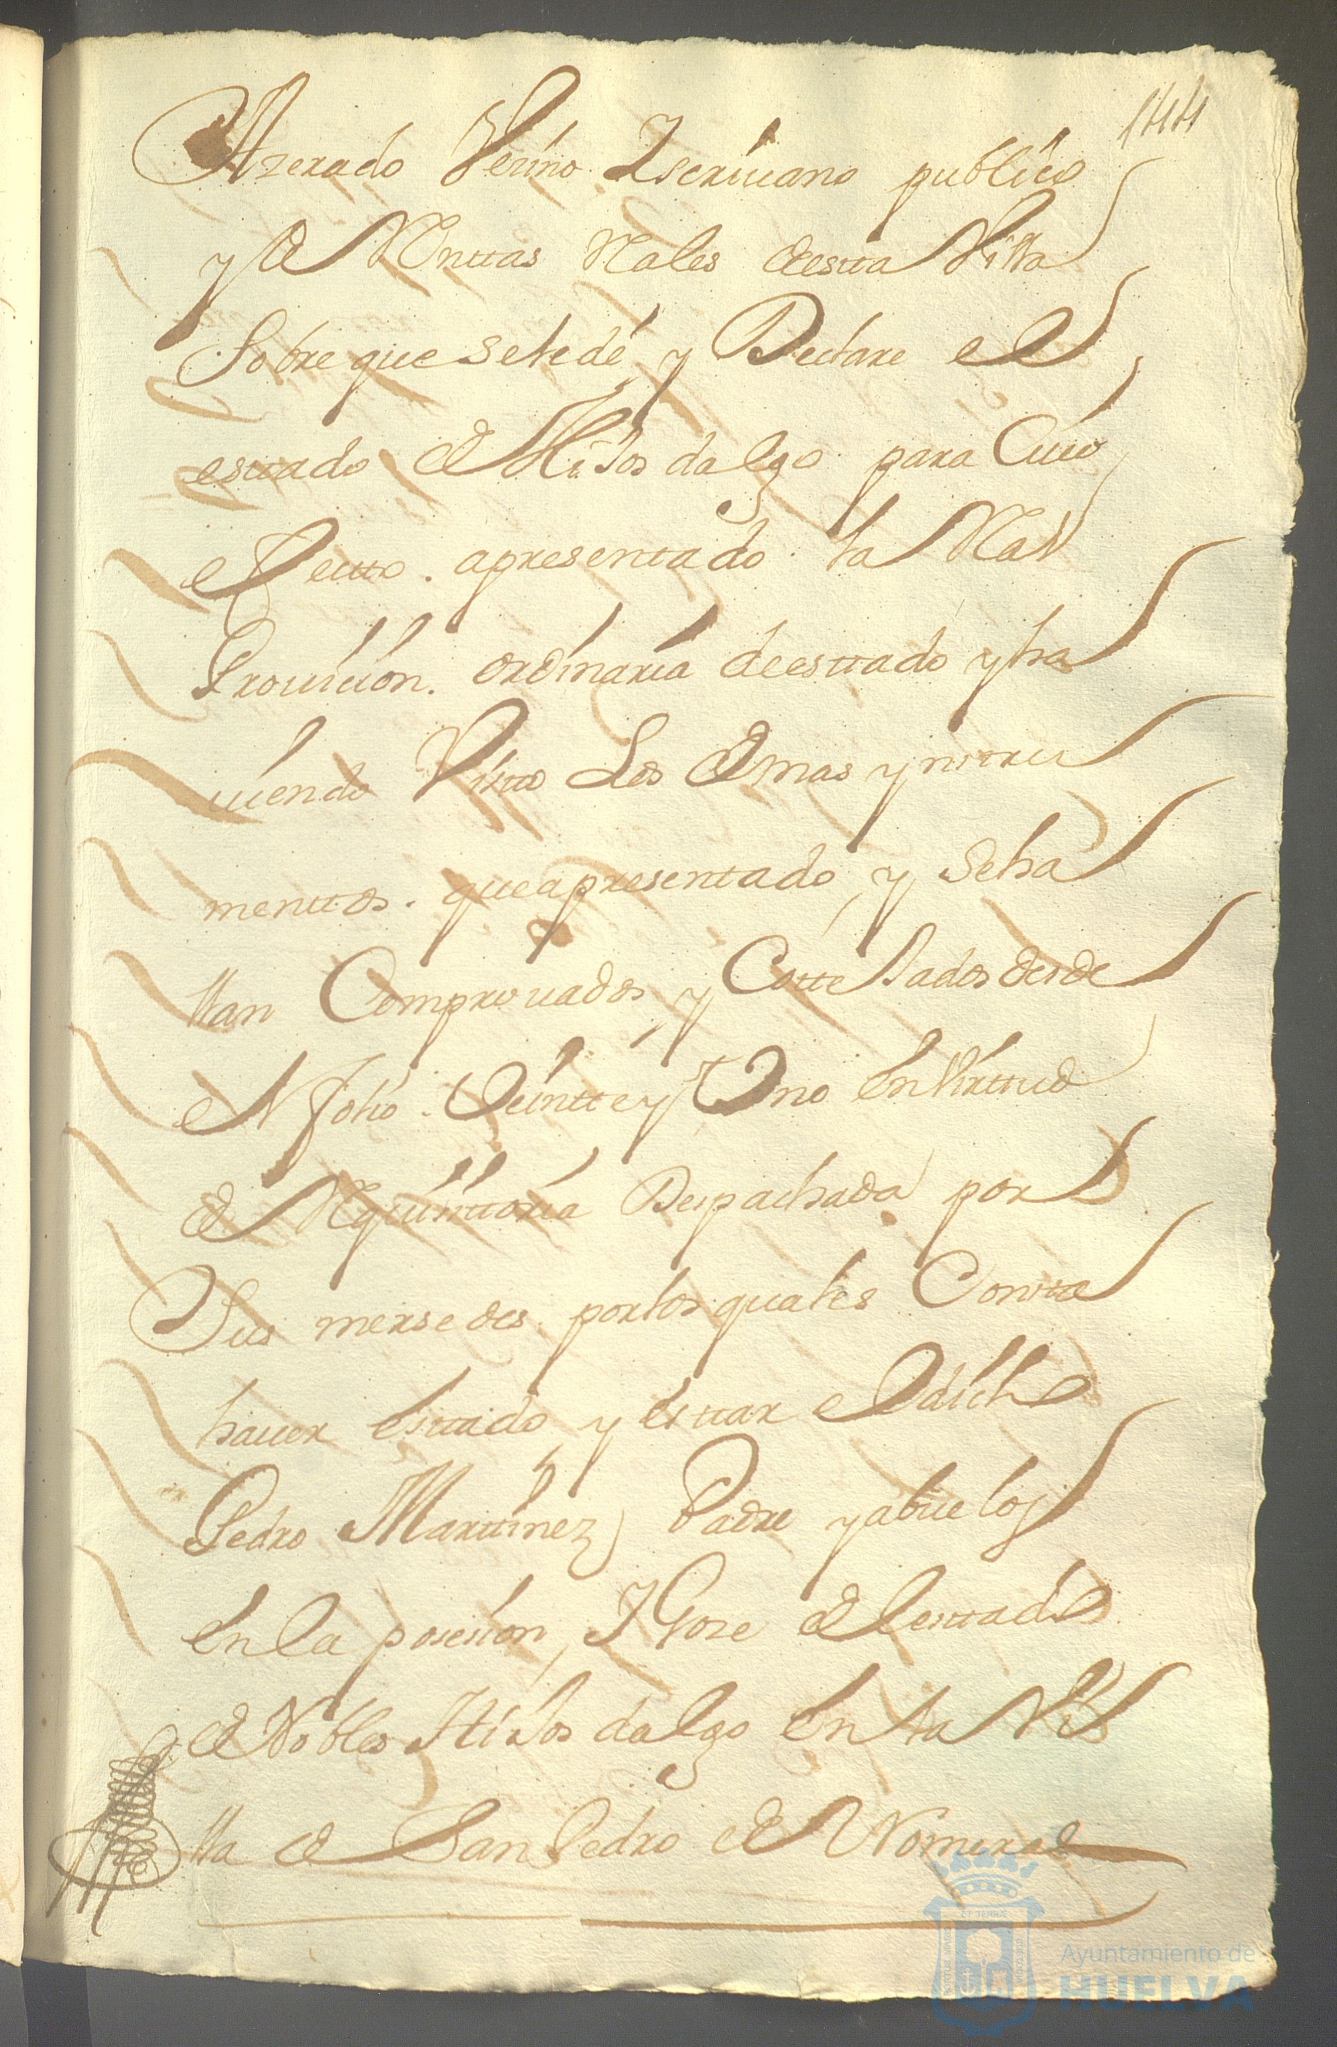 144
Azerado Vezino Escriuano publico
y de Renttas Rales de esta Villa
Sobre que se le dé, y Declare el
esttado de Hijos dalgo para Cuio
efectto. apresenttado la Real
Provicion. ordinaria de esttado y ha
uiendo Vistto Los demas ynstru
menttos. que apresenttado, y se ha
llan Comprouados, y Cottejados desde
el folio. Veintte y Uno En Virttud
de Requisittoria Despachada por
Sus mersedes. por los quales Consta
hauer Esttado y Esttar el dicho
Pedro Marttinez, Padre y abuelos
En la posesion, Y Goze del esttado
de Nobles Hijos dalgo En la Vi
lla de San Pedro del Romeral
Ayuntamiento de
HUELVA